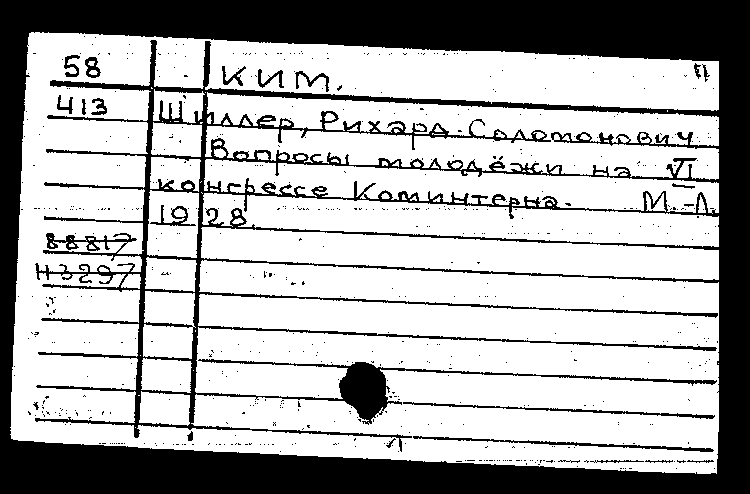 58 КИМ.
413 Шиллер, Рихард Соломонович
Вопросы молодёжи на VI
конгрессе Коминтерна. М.-Л.
1928.
88817
Н3297